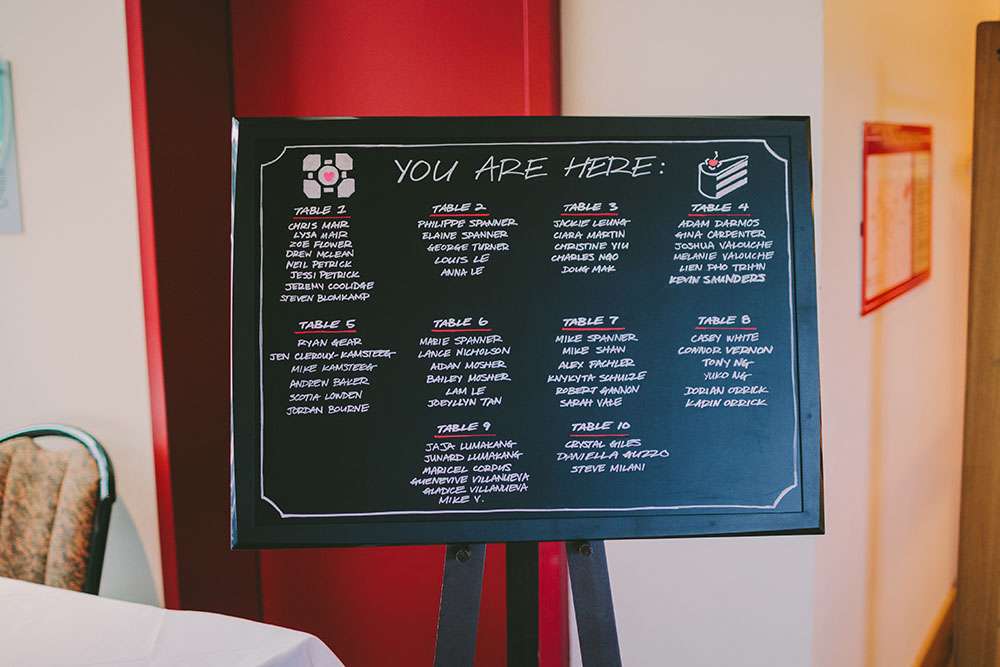 YOU ARE HERE:
TABLE 1
CHRIS MAIR
LYSA MAIR
ZOE FLOWER
DREW MCLEAN
NEIL PETRICK
JESSI PETRICK
JEREMY COOLIDGE
STEVEN BLOMKAMP
TABLE 2
PHILIPPE SPANNER
ELAINE SPANNER
GEORGE TURNER
LOUIS LE
ANNA LE
TABLE 3
JACKIE LEUNG
CIARA MARTIN
CHRISTINE YIU
CHARLES NGO
DOUG MAK
TABLE 4
ADAM DARMOS
GINA CARPENTER
JOSHUA VALOUCHE
MELANIE VALOUCHE
LIEN PHO TRIHN
KEVIN SAUNDERS
TABLE 5
RYAN GEAR
JEN CLEROUX-KAMSTEEG
MIKE KAMSTEEG
ANDREW BAKER
SCOTIA LOWDEN
JORDAN BOURNE
TABLE 6
MARIE SPANNER
LANCE NICHOLSON
AIDAN MOSHER
BAILEY MOSHER
LAM LE
JOEYLLYN TAN
TABLE 7
MIKE SPANNER
MIKE SHAW
ALEX PACHLER
KNYKYTA SCHULZE
ROBERT GANNON
SARAH VALE
TABLE 8
CASEY WHITE
CONNOR VERNON
TONY NG
YUKO NG
DORIAN ORRICK
KARIN ORRICK
TABLE 9
JAJA LUMAKANG
JUNARD LUMAKANG
MARICEL CORPUS
GUENEVIVE VILLANUEVA
GLADICE VILLANUEVA
MIKE V.
TABLE 10
CRYSTAL GILES
DANIELLA GUZZO
STEVE MILANI